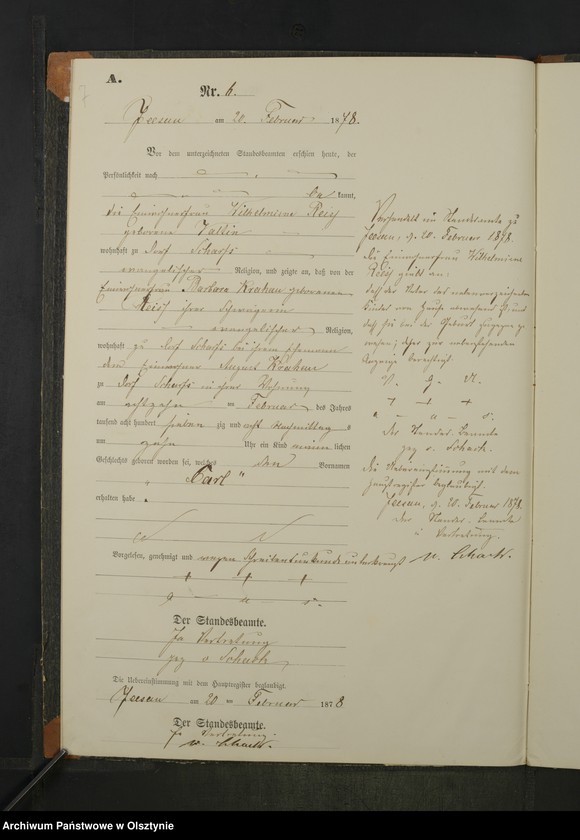 A.
7
Nr. 6.
am 20. Februar 1878.
Vor dem unterzeichneten Standesbeamten erschien heute, der
Persönlichkeit nach
be kannt,
die Einwohnerfrau Wilhelmine Reiß
geborene
wohnhaft zu Dorf
evangelischer Religion, und zeigte an, daß von der
Einwohnerfrau Barbara Krahau geborenen
ihrer Schwägerin
evangelischer Religion,
wohnhaft zu Dorf bei ihrem Ehemann
dem Einwohner August Krahau
zu Dorf in ihrer Wohnung
am achtzehn ten Februar des Jahres
tausend acht hundert sieben zig und acht Nachmittag s
um zehn Uhr ein Kind männ lichen
Geschlechts geboren worden sei, welches den Vornamen
„Carl“
erhalten habe.
Vorgelesen, genehmigt und wegen Schreibensunkunde unterkreuzt
+ + +
Der Standesbeamte.
In Vertretung
gez v
Die Uebereinstimmung mit dem Hauptregister beglaubigt.
am 20 ten Februar 1878
Der Standesbeamte.
In Vertretung.
v.
Verhandelt im Standesamte zu
d. 20. Februar 1878.
Die Einwohnerfrau Wilhelmine
Reiß giebt an:
daß der Vater des nebenverzeichneten
Kindes von Hause abwesend ist und
daß sie bei der Geburt zugegen ge
wesen; daher zur nebenstehenden
Anzeige berechtigt.
V. g. u.
+ + +
Der Standes Beamte
gez v.
Die Uebereinstimmung mit dem
Hauptregister beglaubigt.
d. 20. Februar 1878.
Der Standes-Beamte
in Vertretung.
v.
Archiwum Państwowe w Olsztynie